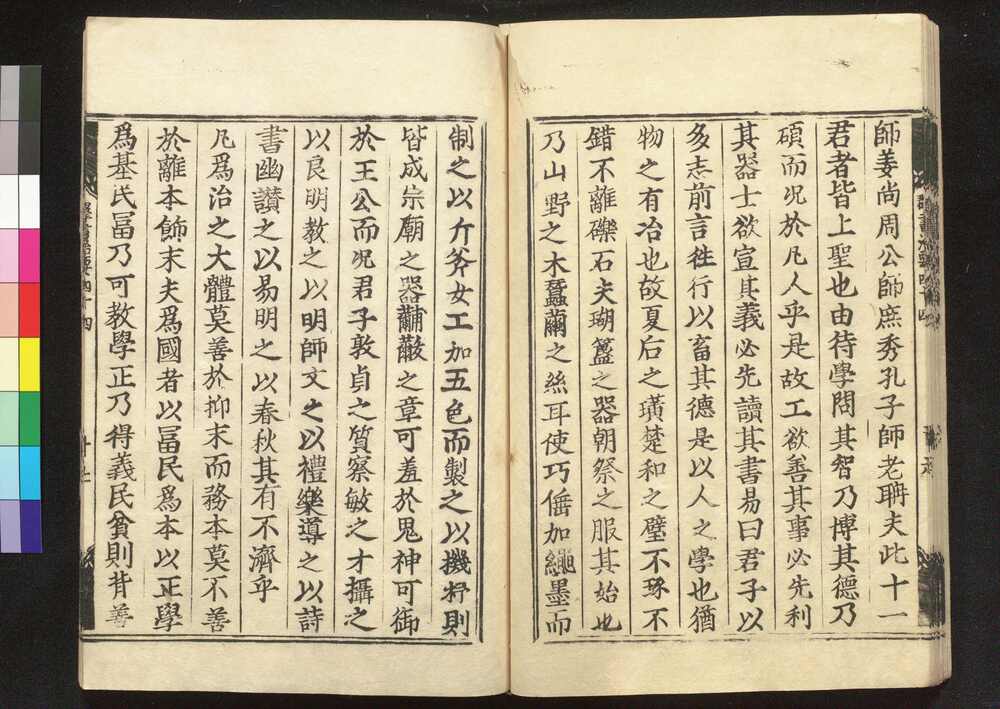 師姜尚周公師庶秀孔子師老聃夫此十一
君者皆上聖也由待學問其智乃博其德乃
碩而况於凡人乎是故工欲善其事必先利
其器士欲宣其義必先讀其書易曰君子以
多志前言徃行以畜其德是以人之學也猶
物之有冶也故夏后之璜楚和之璧不琢不
錯不離礫石夫瑚簋之器朝祭之服其始也
乃山野之木蠶繭之絲耳使巧倕加繩墨而
制之以斤斧女工加五色而製之以機杼則
皆成宗廟之器黼黻之章可羞於鬼神可御
於王公而况君子敦貞之質察敏之才攝之
以良明教之以明師文之以禮樂導之以詩
書幽讃之以易明之以春秋其有不濟乎
凡爲治之大體莫善於抑末而務本莫不善
於離本飾末夫爲國者以冨民爲本以正學
爲基民冨乃可教學正乃得義民貧則背善
群書治要四十四